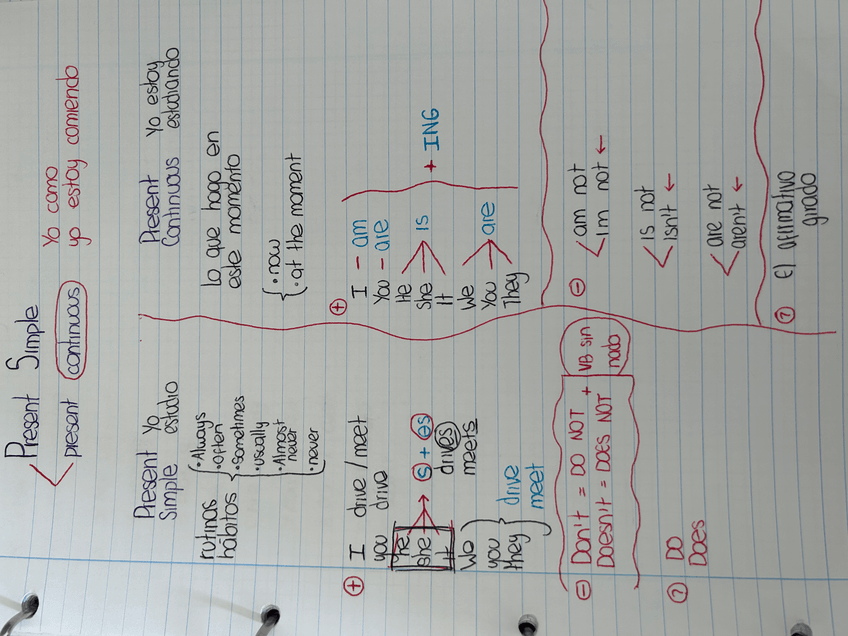 Present Simple Yo como
present continuous yo estoy comiendo
Present Yo
Simple estudio
rutinas
hábitos
• Always
• often
• sometimes
• usually
• Almost
never
• never
+
I drive / meet
you drive
he
she → s + es
it
drives
meets
We
you
they
drive
meet
- Don't = DO NOT + VB sin
Doesn't = DOES NOT nada
? DO
Does
Present Yo estoy
Continuous estudiando
lo que hago en
este momento
• now
• at the moment
+
I - am
You - are
He
She is
It
We
You are
They
+ ING
-
am not
I'm not ←
is not
isn't ←
are not
aren't ←
? El afirmativo
girado